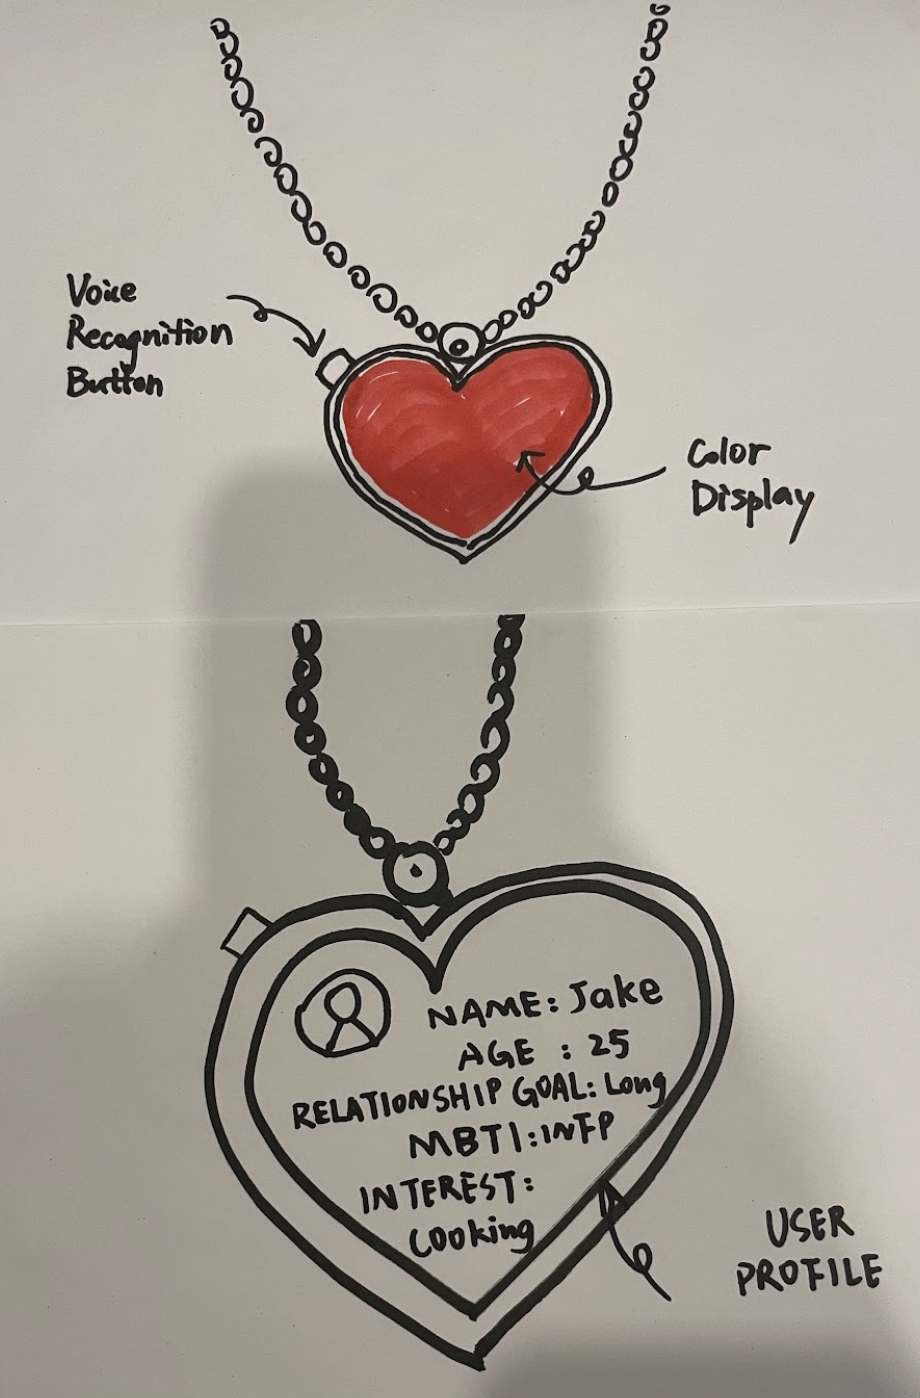 Voice
Recognition
Button
Color
Display
NAME: Jake
AGE : 25
RELATIONSHIP GOAL: Long
MBTI: INFP
INTEREST:
Cooking
USER
PROFILE